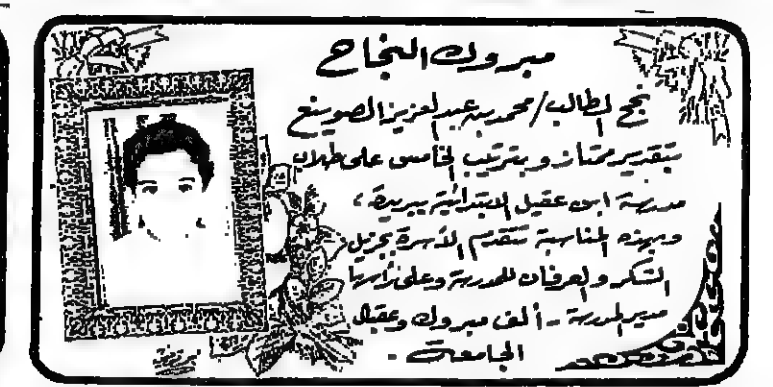 مبروك النجاح
نجح الطالب/محمد بن عبدالعزيز الصوينع
بتقدير ممتاز وبترتيب الخامس على طلاب
مدرسة ابن عقيل الابتدائية ببريدة،
وبهذه المناسبة تتقدم الأسرة بجزيل
الشكر والعرفان للمدرسة وعلى رأسها
مدير المدرسة - ألف مبروك وعقبال
الجامعة -